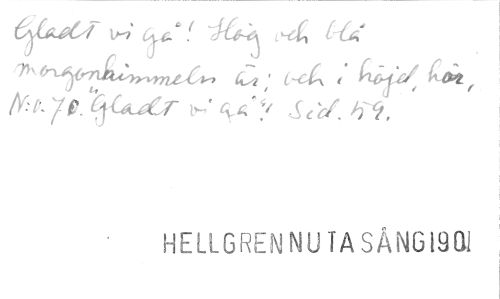 Gladt vi gå! Hög och blå
morgonhimmeln är; och i höjd, hör,
N:o. 70. "Gladt vi gå"! Sid. 59.
HELLGREN NUTA SÅNG 1901